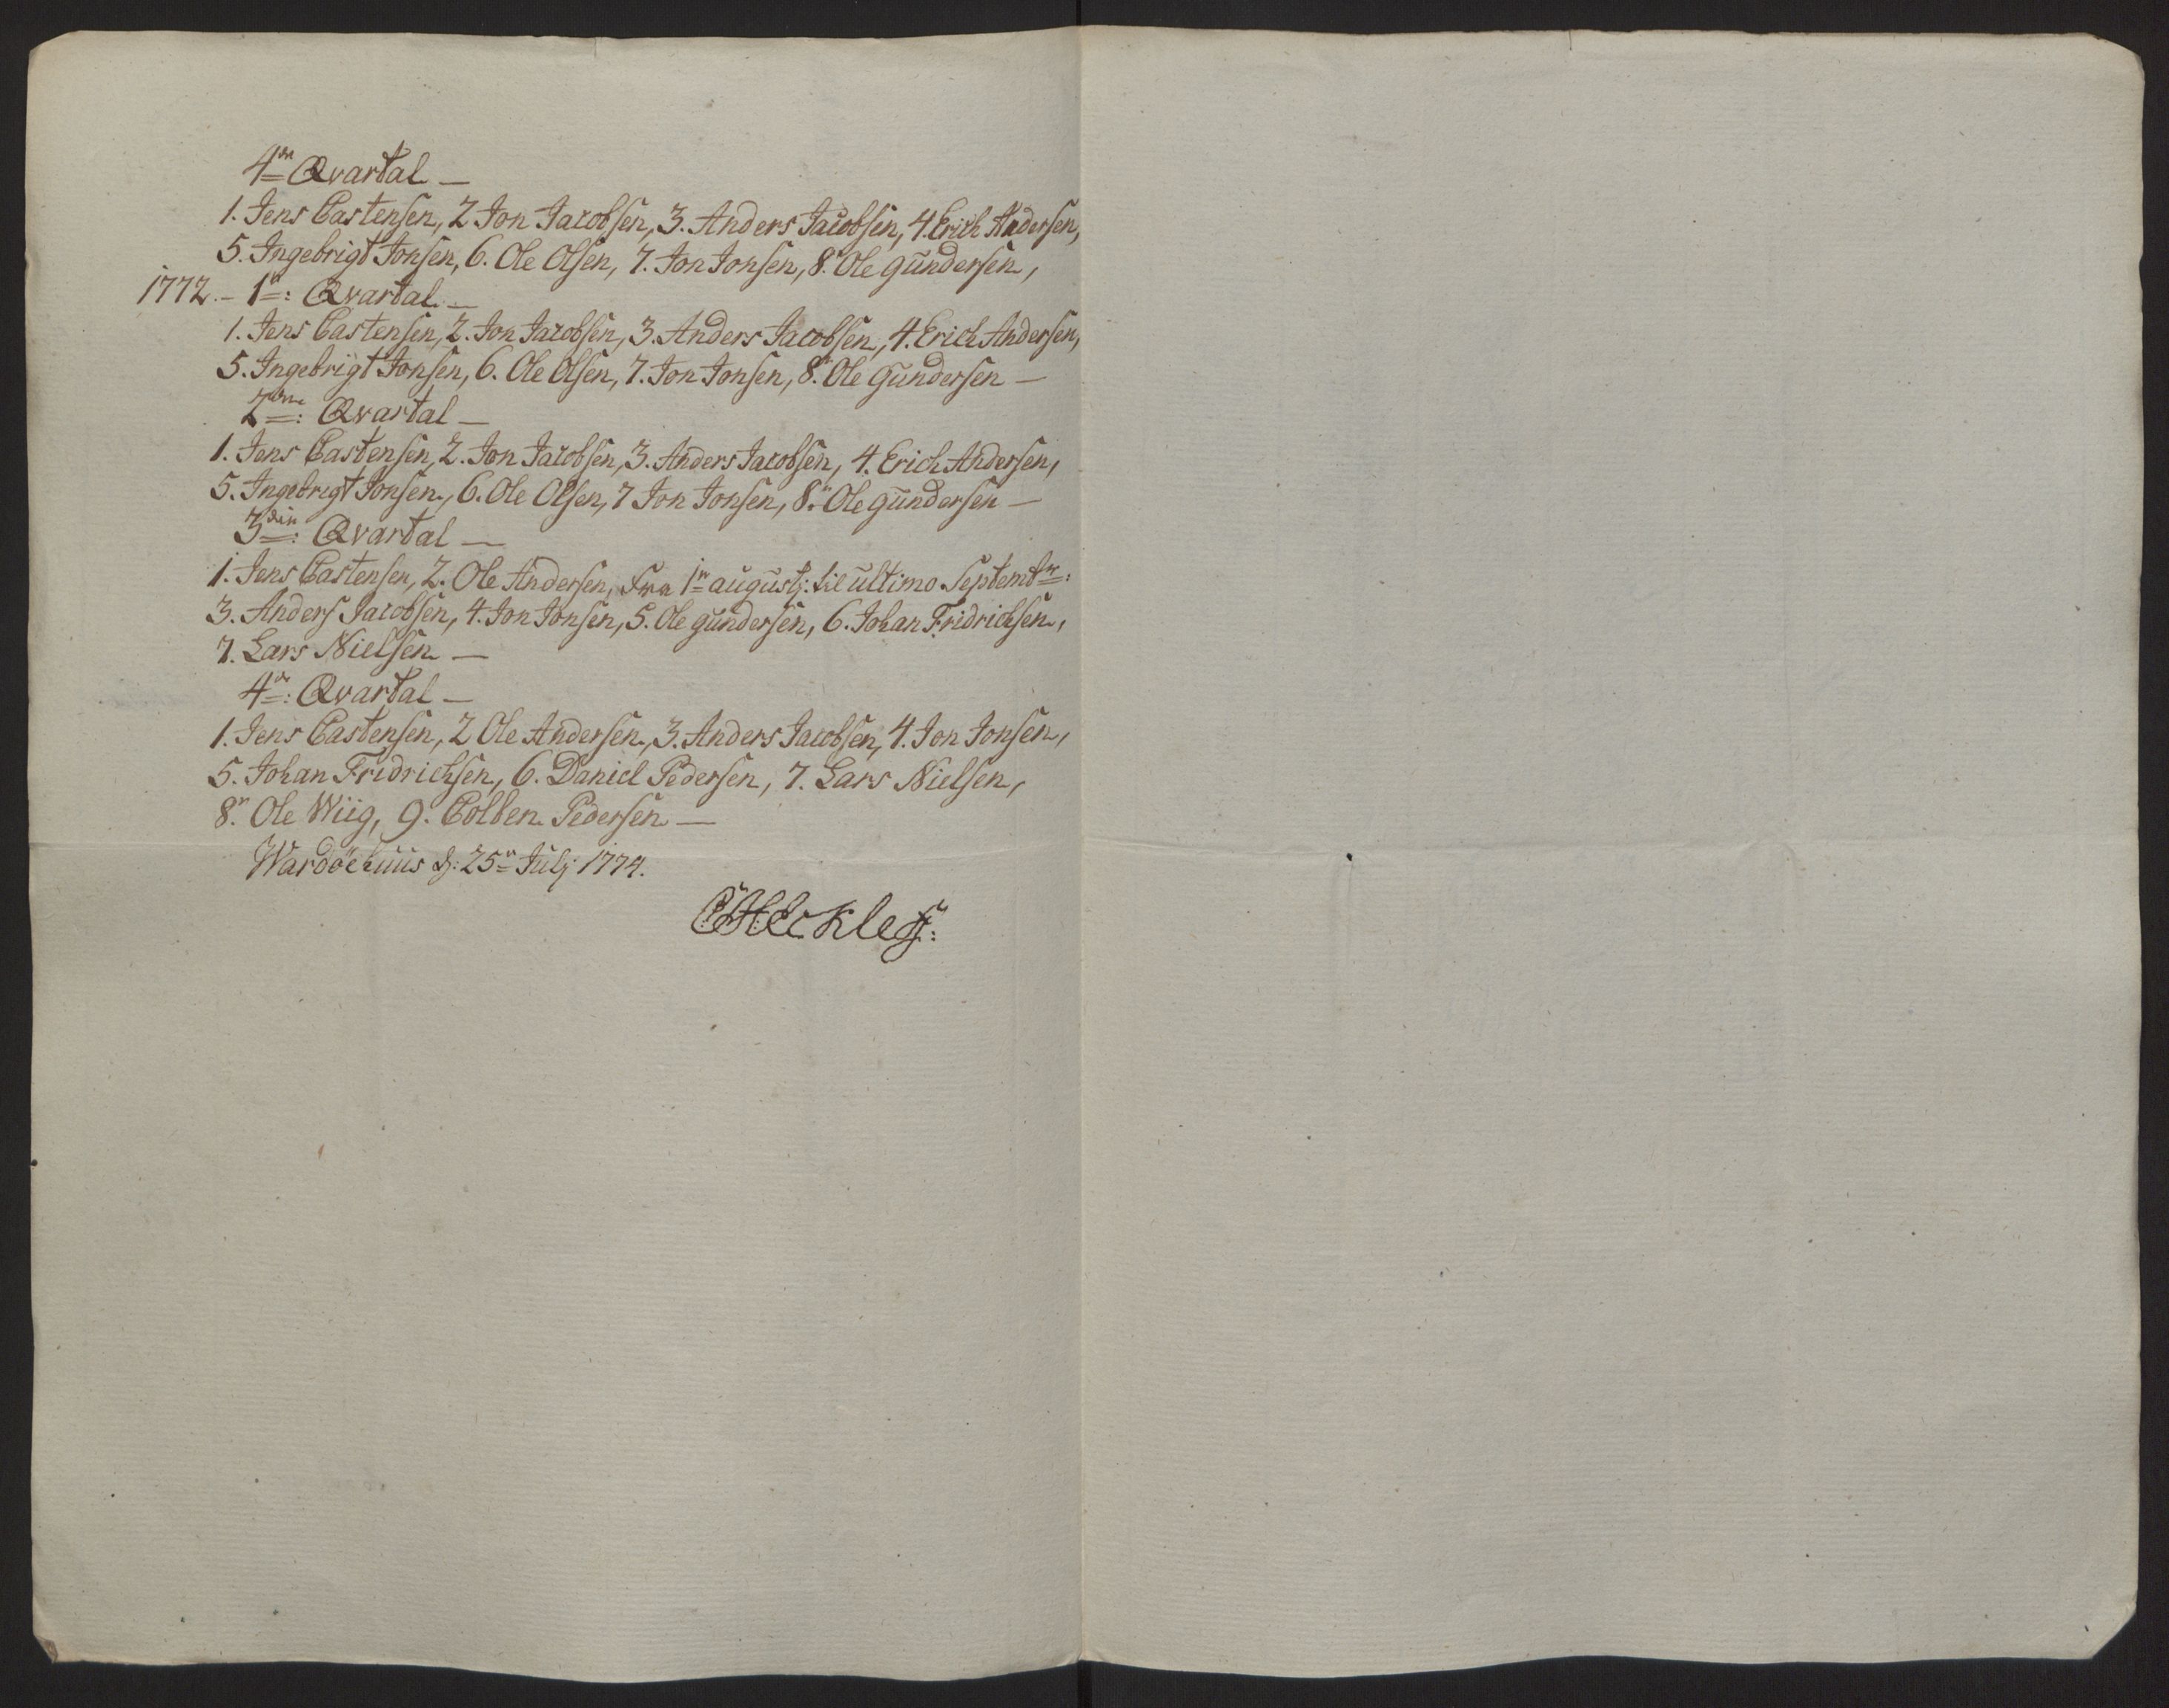 4de Qvartal —
1. Jens Castensen, 2 Jon Jacobsen, 3. Anders Jacobsen, 4. Erich Andersen,
5. Ingebrigt Jonsen, 6. Ole Olsen, 7. Jon Jonsen, 8. Ole gundersen,
1772. – 1ste: Qvartal. —
1. Jens Castensen, 2. Jon Jacobsen, 3. Anders Jacobsen, 4. Erich Andersen,
5. Ingebrigt Jonsen, 6. Ole Olsen, 7. Jon Jonsen, 8. Ole Gundersen —
2den: Qvartal —
1. Jens Castensen, 2. Jon Jacobsen, 3. Anders Jacobsen, 4. Erich Andersen,
5. Ingebrigt Jonsen, 6. Ole Olsen, 7 Jon Jonsen, 8. Ole gundersen —
3die: Qvartal —
1. Jens Castensen, 2. Ole Andersen, fra 1n augustj: til ultimo Septembr:
3. Anders Jacobsen, 4. Jon Jonsen, 5. Ole gundersen, 6. Johan Fridrichsen,
7. Lars Nielsen —
4de: Qvartal —
1. Jens Castensen, 2 Ole Andersen, 3. Anders Jacobsen, 4. Jon Jonsen,
5. Johan Fridrichsen, 6. Daniel Pedersen, 7. Lars Nielsen,
8. Ole Wiig, 9. Colben Pedersen —
Wardöehuus d: 25n Julj 1774.